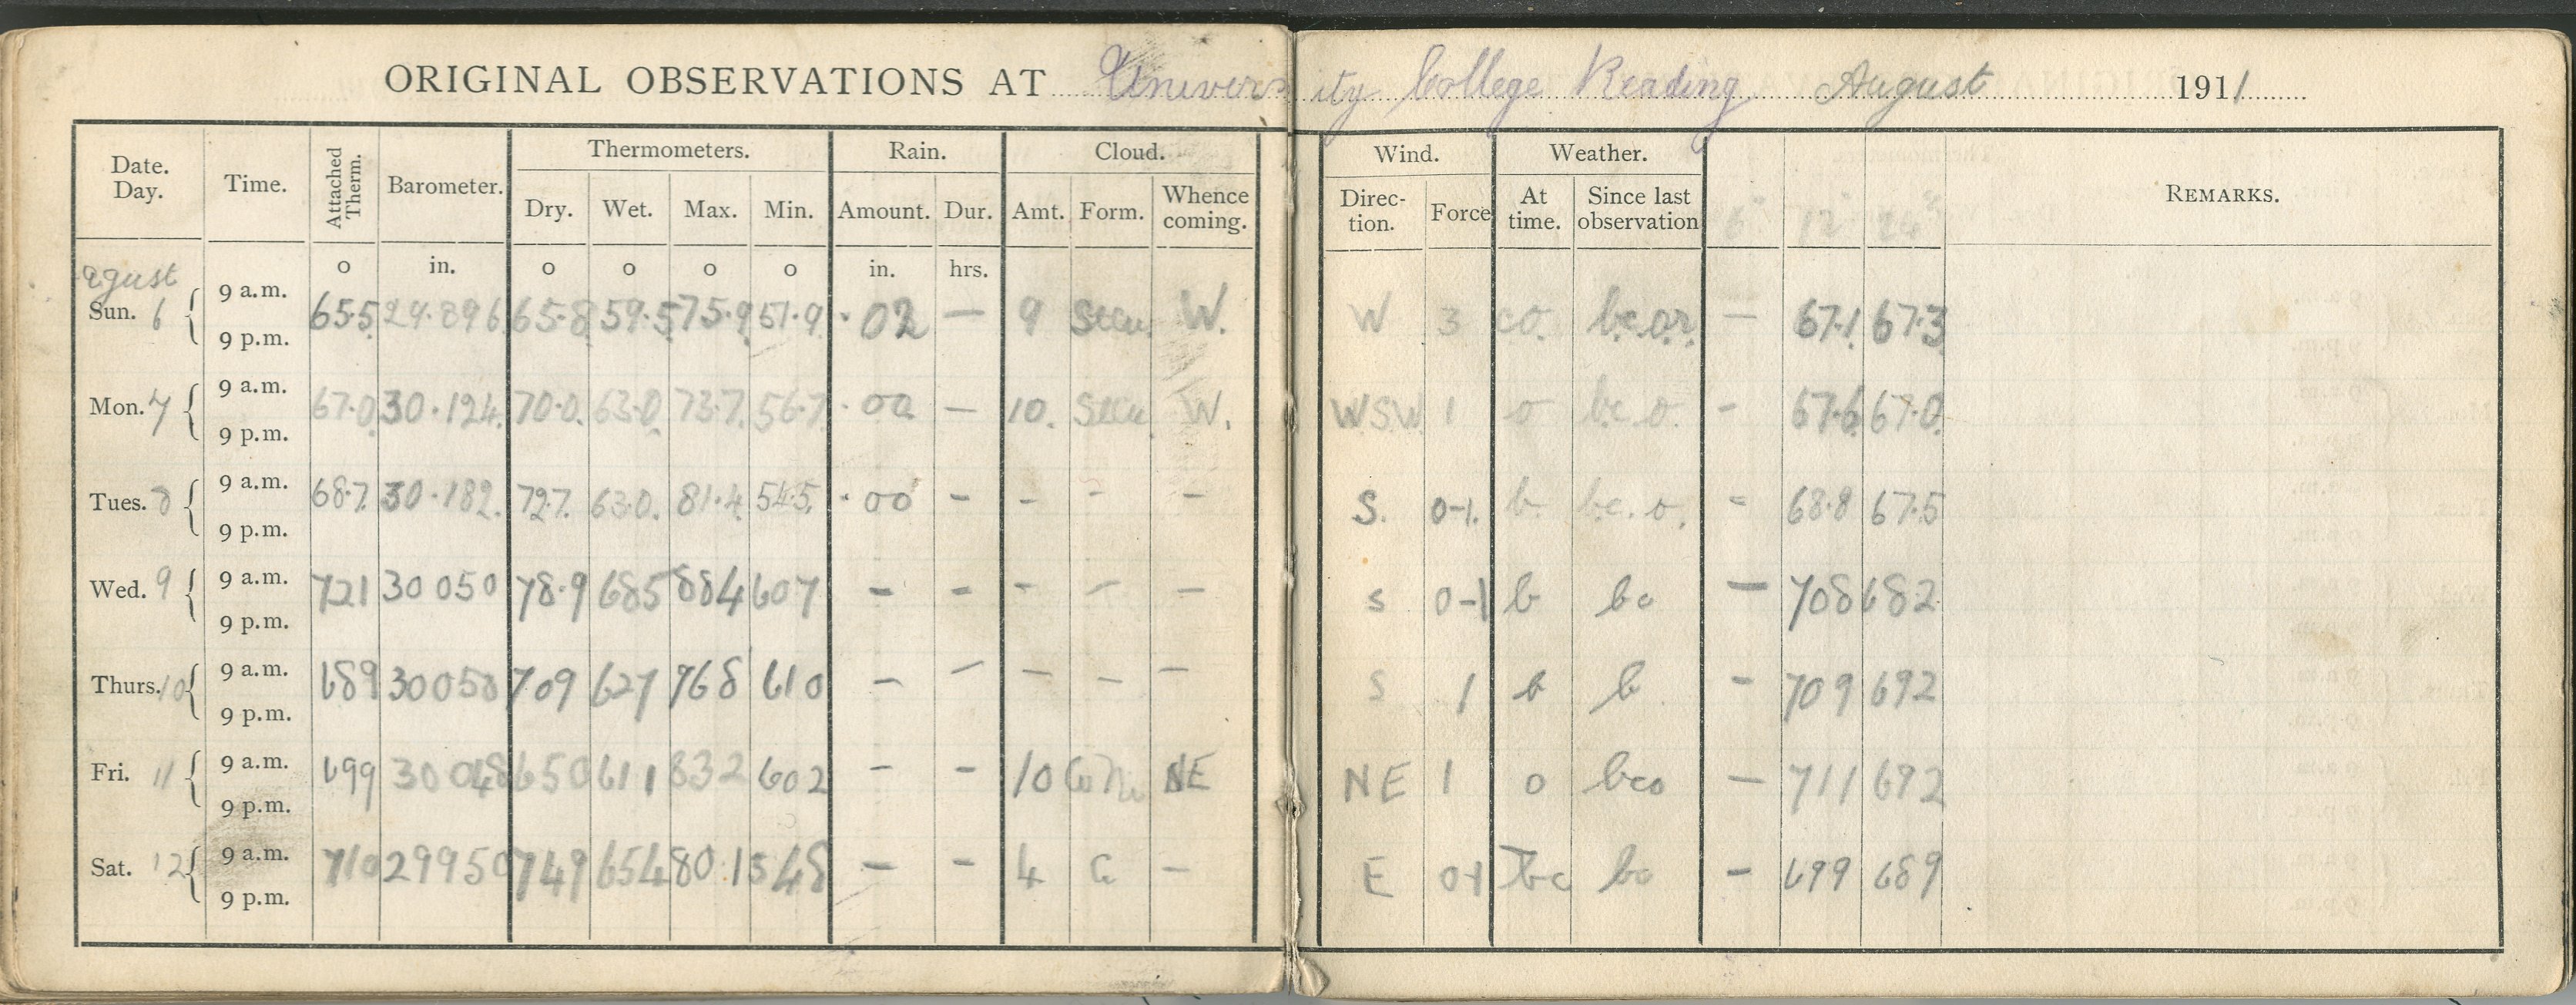 ORIGINAL OBSERVATIONS AT University College Reading August 1911
Date. Day. Time. Attached Therm. Barometer. Thermometers. Rain. Cloud. Wind. Weather. REMARKS.
Dry. Wet. Max. Min. Amount. Dur. Amt. Form. Whence coming. Direction. Force At time. Since last observation 6" 12" 24"
o in. o o o o in. hrs.
August
Sun. 6 9 a.m. 65.5 29.896 65.8 59.5 75.9 51.9 .02 — 9 Stcu W. W 3 co. bc.or. — 67.1 67.3
9 p.m.
Mon. 7 9 a.m. 67.0 30.124 70.0 63.0 73.7 56.7 .00 — 10. Stcu W. WSW 1 o bc.o. - 67.6 67.0
9 p.m.
Tues. 8 9 a.m. 68.7 30.182 72.7 63.0 81.4 54.5 .00 - - - - S. 0-1. b. bc.o. - 68.8 67.5
9 p.m.
Wed. 9 9 a.m. 721 30 050 78.9 685 884 607 - - - - - S 0-1 b bc — 708 682
9 p.m.
Thurs. 10 9 a.m. 689 30058 709 627 768 610 - - - - - S 1 b b - 709 692
9 p.m.
Fri. 11 9 a.m. 699 30 048 650 611 832 602 - - 10 CuNi NE NE 1 o bco — 711 692
9 p.m.
Sat. 12 9 a.m. 710 29950 749 654 80 1 548 - - 4 C - E 01 bc bc - 699 689
9 p.m.